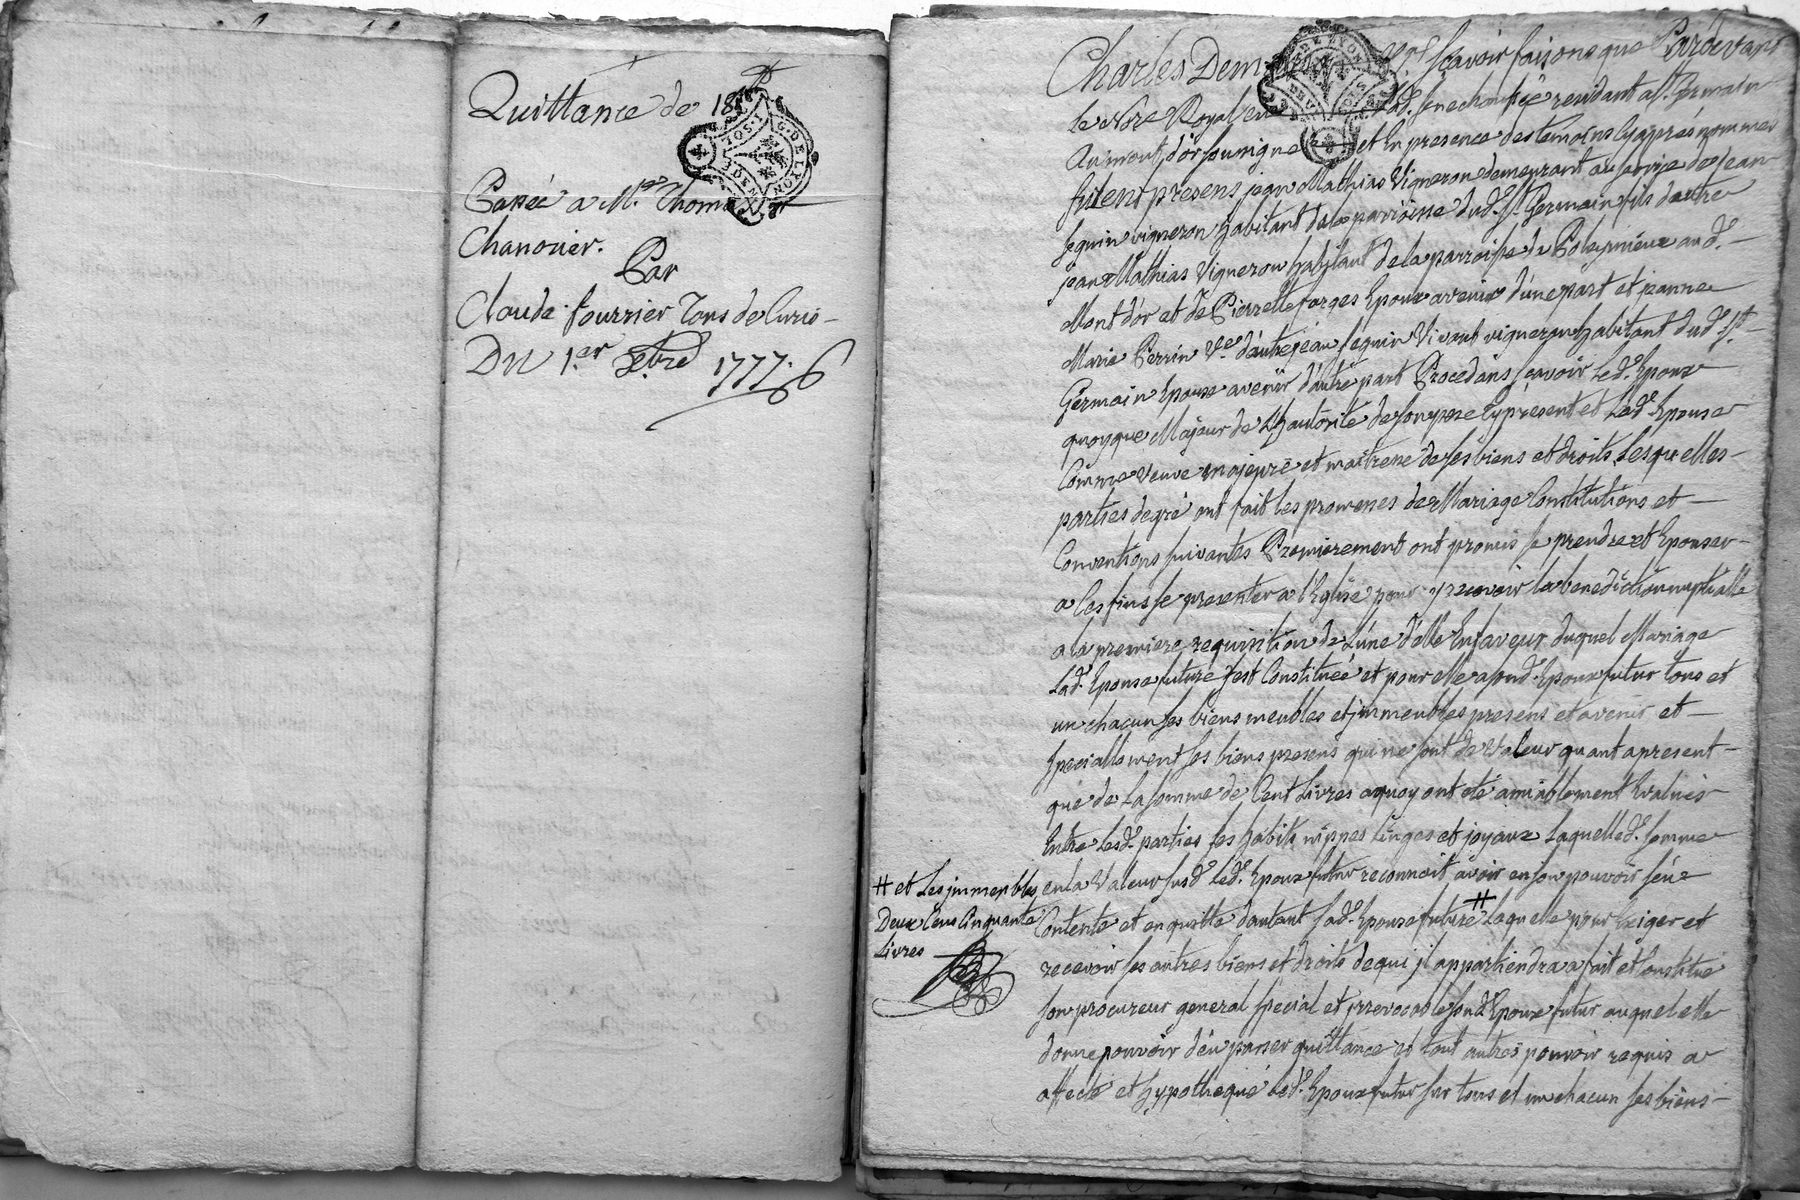 Quittance de 18#
Passée a Mr. Thomas
Chanorier.
Par
Claude fourrier Tons de Curis
Du 1.er 7bre 1777.
G. DE LYON
Charles Dem scavoir faisons que Pardevant
le No.re Royal en lad. senechaussée residant a St. Germain
Aumont d'or soussigné et En presence des temoins cy apres nommés
furent presens jean Mathias Vigneron demeurant au service de Jean
sequin vigneron habitant de la parroisse dud. St. Germain fils d'autre
jean Mathias Vigneron habitant de la parroisse de Poleymieux au d.
Mont d'or et de Pierrette farges Epoux avenir d'une part et jeanne
Marie Perrin Ve. d'autre jean sequin Vivant vigneron habitant dud. St.
Germain Epouse avenir d'autre part Procedans scavoir Led. Epoux
quoyque Majeur de L'hautorité de son pere cy present et Lad. Epouse
Comme veuve majeure et maitresse de ses biens et droits Lesquelles
parties degré ont fait Les promesses de Mariage Constitutions et
Conventions suivantes Premierement ont promis se prendre et Epouser
a Ces fins se presenter a l'Eglise pour y recevoir la benediction nuptialle
a la premiere requisition de L'une d'elle En faveur duquel Mariage
Lad. Epouse future s'est Constituée et pour elle a sond. Epoux futur tous et
un chacun ses biens meubles et jmmeubles presens et avenir et
speciallement ses biens presens qui ne sont de Valeur quant apresent
que de La somme de Cent Livres a quoy ont eté amiablement Evalués
Entre Lesd. parties ses habits nippes Linges et joyaux Laquelle d. somme
en la Valeur susd. Led. Epoux futur reconnoit avoir en son pouvoir s'en
Contente et en quitte d'autant sad. Epouse future # Laquelle pour Exiger et
recevoir ses autres biens et droits de qui jl appartiendra a fait et Constitué
son procureur general special et irrevocable sond. Epoux futur auquel elle
donne pouvoir d'en passer quittance et tout autres pouvoir requis a
affecté et hypothequé led. Epoux futur sur tous et un chacun ses biens
# et Les jmmeubles
Deux Cens Cinquante
Livres